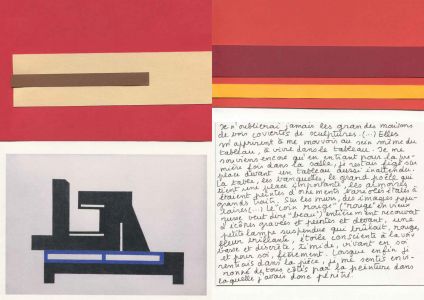 Je n'oublierai jamais les grandes maisons
de bois couvertes de sculptures. (...) Elles
m'apprirent à me mouvoir au sein même du
tableau, à vivre dans le tableau. Je me
souviens encore qu'entrant pour la pre-
mière fois dans la salle, je restai figé sur
place devant un tableau aussi inattendu.
La table, les banquettes, le grand poêle qui
tient une place importante, les armoires
étaient peints d'ornements bariolés étalés à
grands traits. Sur les murs, des images popu-
laires (...) Le "coin rouge" ("rouge" en vieux
russe veut dire "beau") entièrement recouvert
d'icônes gravées et peintes et devant, une
petite lampe suspendue qui brûlait, rouge,
fleur brillante, étoile consciente à la voix
basse et discrète, timide, vivant en soi
et pour soi, fièrement. Lorsque enfin je
rentrais dans la pièce, je me sentis envi-
ronné de tous côtés par la peinture dans
laquelle j'avais donc pénétré.